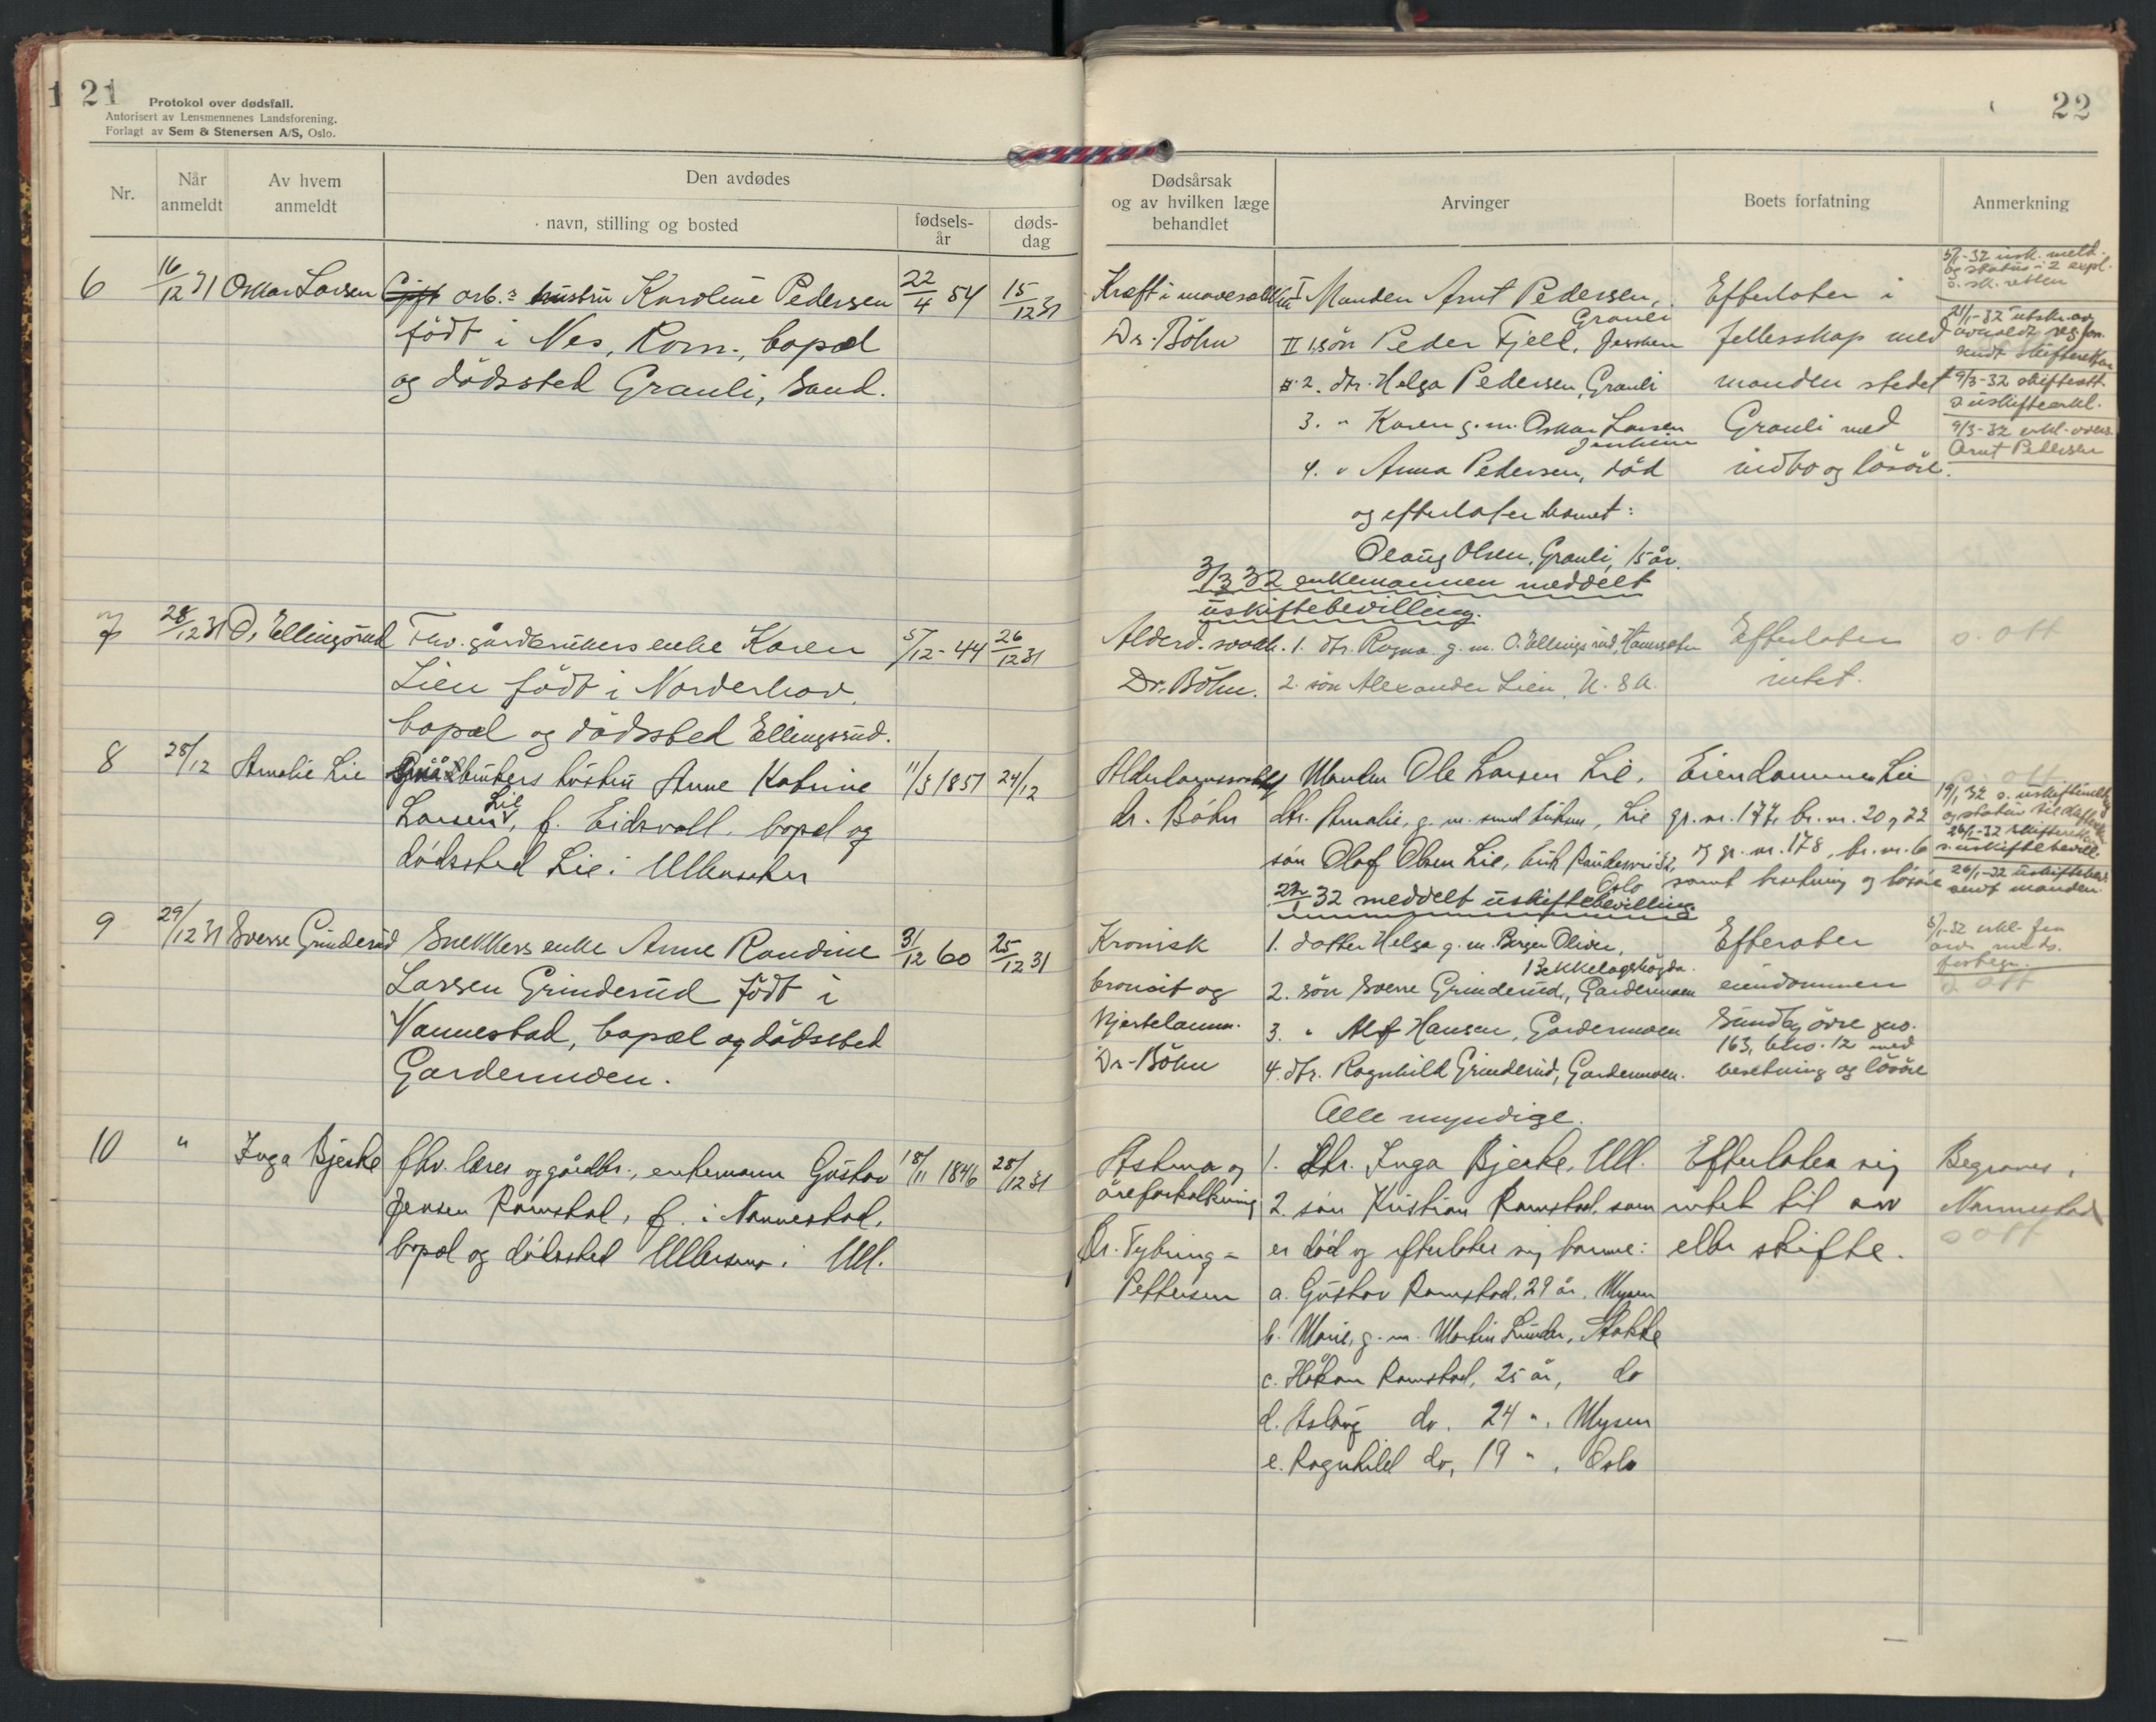 21
Protokol over dødsfall.
Autorisert av Lensmennenes Landsforening.
Forlagt av Sem & Stenersen A/S, Oslo.
Nr.
Når anmeldt
Av hvem anmeldt
Den avdødes
navn, stilling og bosted
fødsels-
år
døds-
dag
6 16/12 31 Oskar Larsen Gift arb.s hustru Karoline Pedersen 22/4 54 15/12 31
født i Nes, Rom., bopæl
og dödssted Grauli, Sand.
7 28/12 31 O. Ellingsrud Fhv. gårdbrukers enke Karen 5/12-44 26/12 31
Lien født i Norderhov,
bopæl og dödssted Ellingsrud.
8 28/12 Amalie Lie Gårdbrukers hustru Anne Katrine 11/5 1851 24/12
Larsen Lie, f. Eidsvoll. bopæl og
dödssted Lie i Ullensaker
9 29/12 31 Sverre Grinderud Snekkers enke Anne Randine 31/12 60 25/12 31
Larsen Grinderud født i
Nannestad, bopæl og dödssted
Gardermoen.
10 " Inga Bjerke fhv. lærer og gårdbr., enkemann Gustav 18/11 1846 28/12 31
Jensen Ramstad, f. i Nannestad,
bopæl og dödssted i Ull.
22
Dødsårsak
og av hvilken læge
behandlet
Arvinger
Boets forfatning
Anmerkning
Kræft i mavesekken
Dr. Böhn
I Manden Arnt Pedersen,
Grauli
II 1. sön Peder Fjell, Jessheim
2. dtr. Helga Pedersen, Grauli
3. " Karen g.m. Oskar Larsen
Jessheim
4. " Anna Pedersen, död
og efterlater barnet:
Olaug Olsen, Grauli, 15 år.
3/3 32 enkemannen meddelt
uskiftebevilling.
Efterlater i
fellesskap med
manden stedet
Grauli med
indbo og lösöre.
5/1-32 usk. meld.
og status i 2 expl.
s. sk. retten
sendt skifteretten
9/3-32 skifteatt.
9/3-32 erkl. overs.
Arnt Pedersen
Alderd. svakh.
Dr. Böhn.
1. dtr. Ragna g.m. O. Ellingsrud,
2. sön Alexander Lien, U.S.A.
Efterlater
intet.
s. att
Alderdomssvakhet
dr. Böhn
Manden Ole Larsen Lie.
dtr. Amalie, g.m. , Lie
sön Olaf Olsen Lie,
Oslo
32 meddelt uskiftebevilling
Eiendommen Lie
gr. nr. 177, br. nr. 20, 22
og gr. nr. 178, br. nr. 6
samt besetning og lösöre
s. att
26/1-32 skifteretten
s. uskiftebevill.
26/1-32 uskiftebev.
sendt manden.
Kronisk
bronsit og
hjertelamm.
Dr. Böhn
1. datter Helga g.m. Birger Olsen,
Bekkelagshögda.
2. sön Sverre Grinderud, Gardermoen
3. " Alf Hansen, Gardermoen
4. dtr. Ragnhild Grinderud, Gardermoen.
Alle myndige.
Efterlater
eiendommen
Sundby övre gno.
163, bno. 12 med
besetning og lösöre
s. att
Astma og
åreforkalkning
Dr. Tybring-
Pettersen
1. Dtr. Inga Bjerke, Ull.
2. sön Kristian Ramstad, som
er död og efterlater sig barna:
a. Gustav Ramstad, 29 år, Mysen
b. Marie, g.m. Martin Lunder, Stokke
c. Håkon Ramstad, 25 år, do
d. Aslaug do. 24 ", Mysen
e. Ragnhild do, 19 ", Oslo
Efterlater sig
intet til arv
eller skifte.
Begraves i
Nannestad
s att